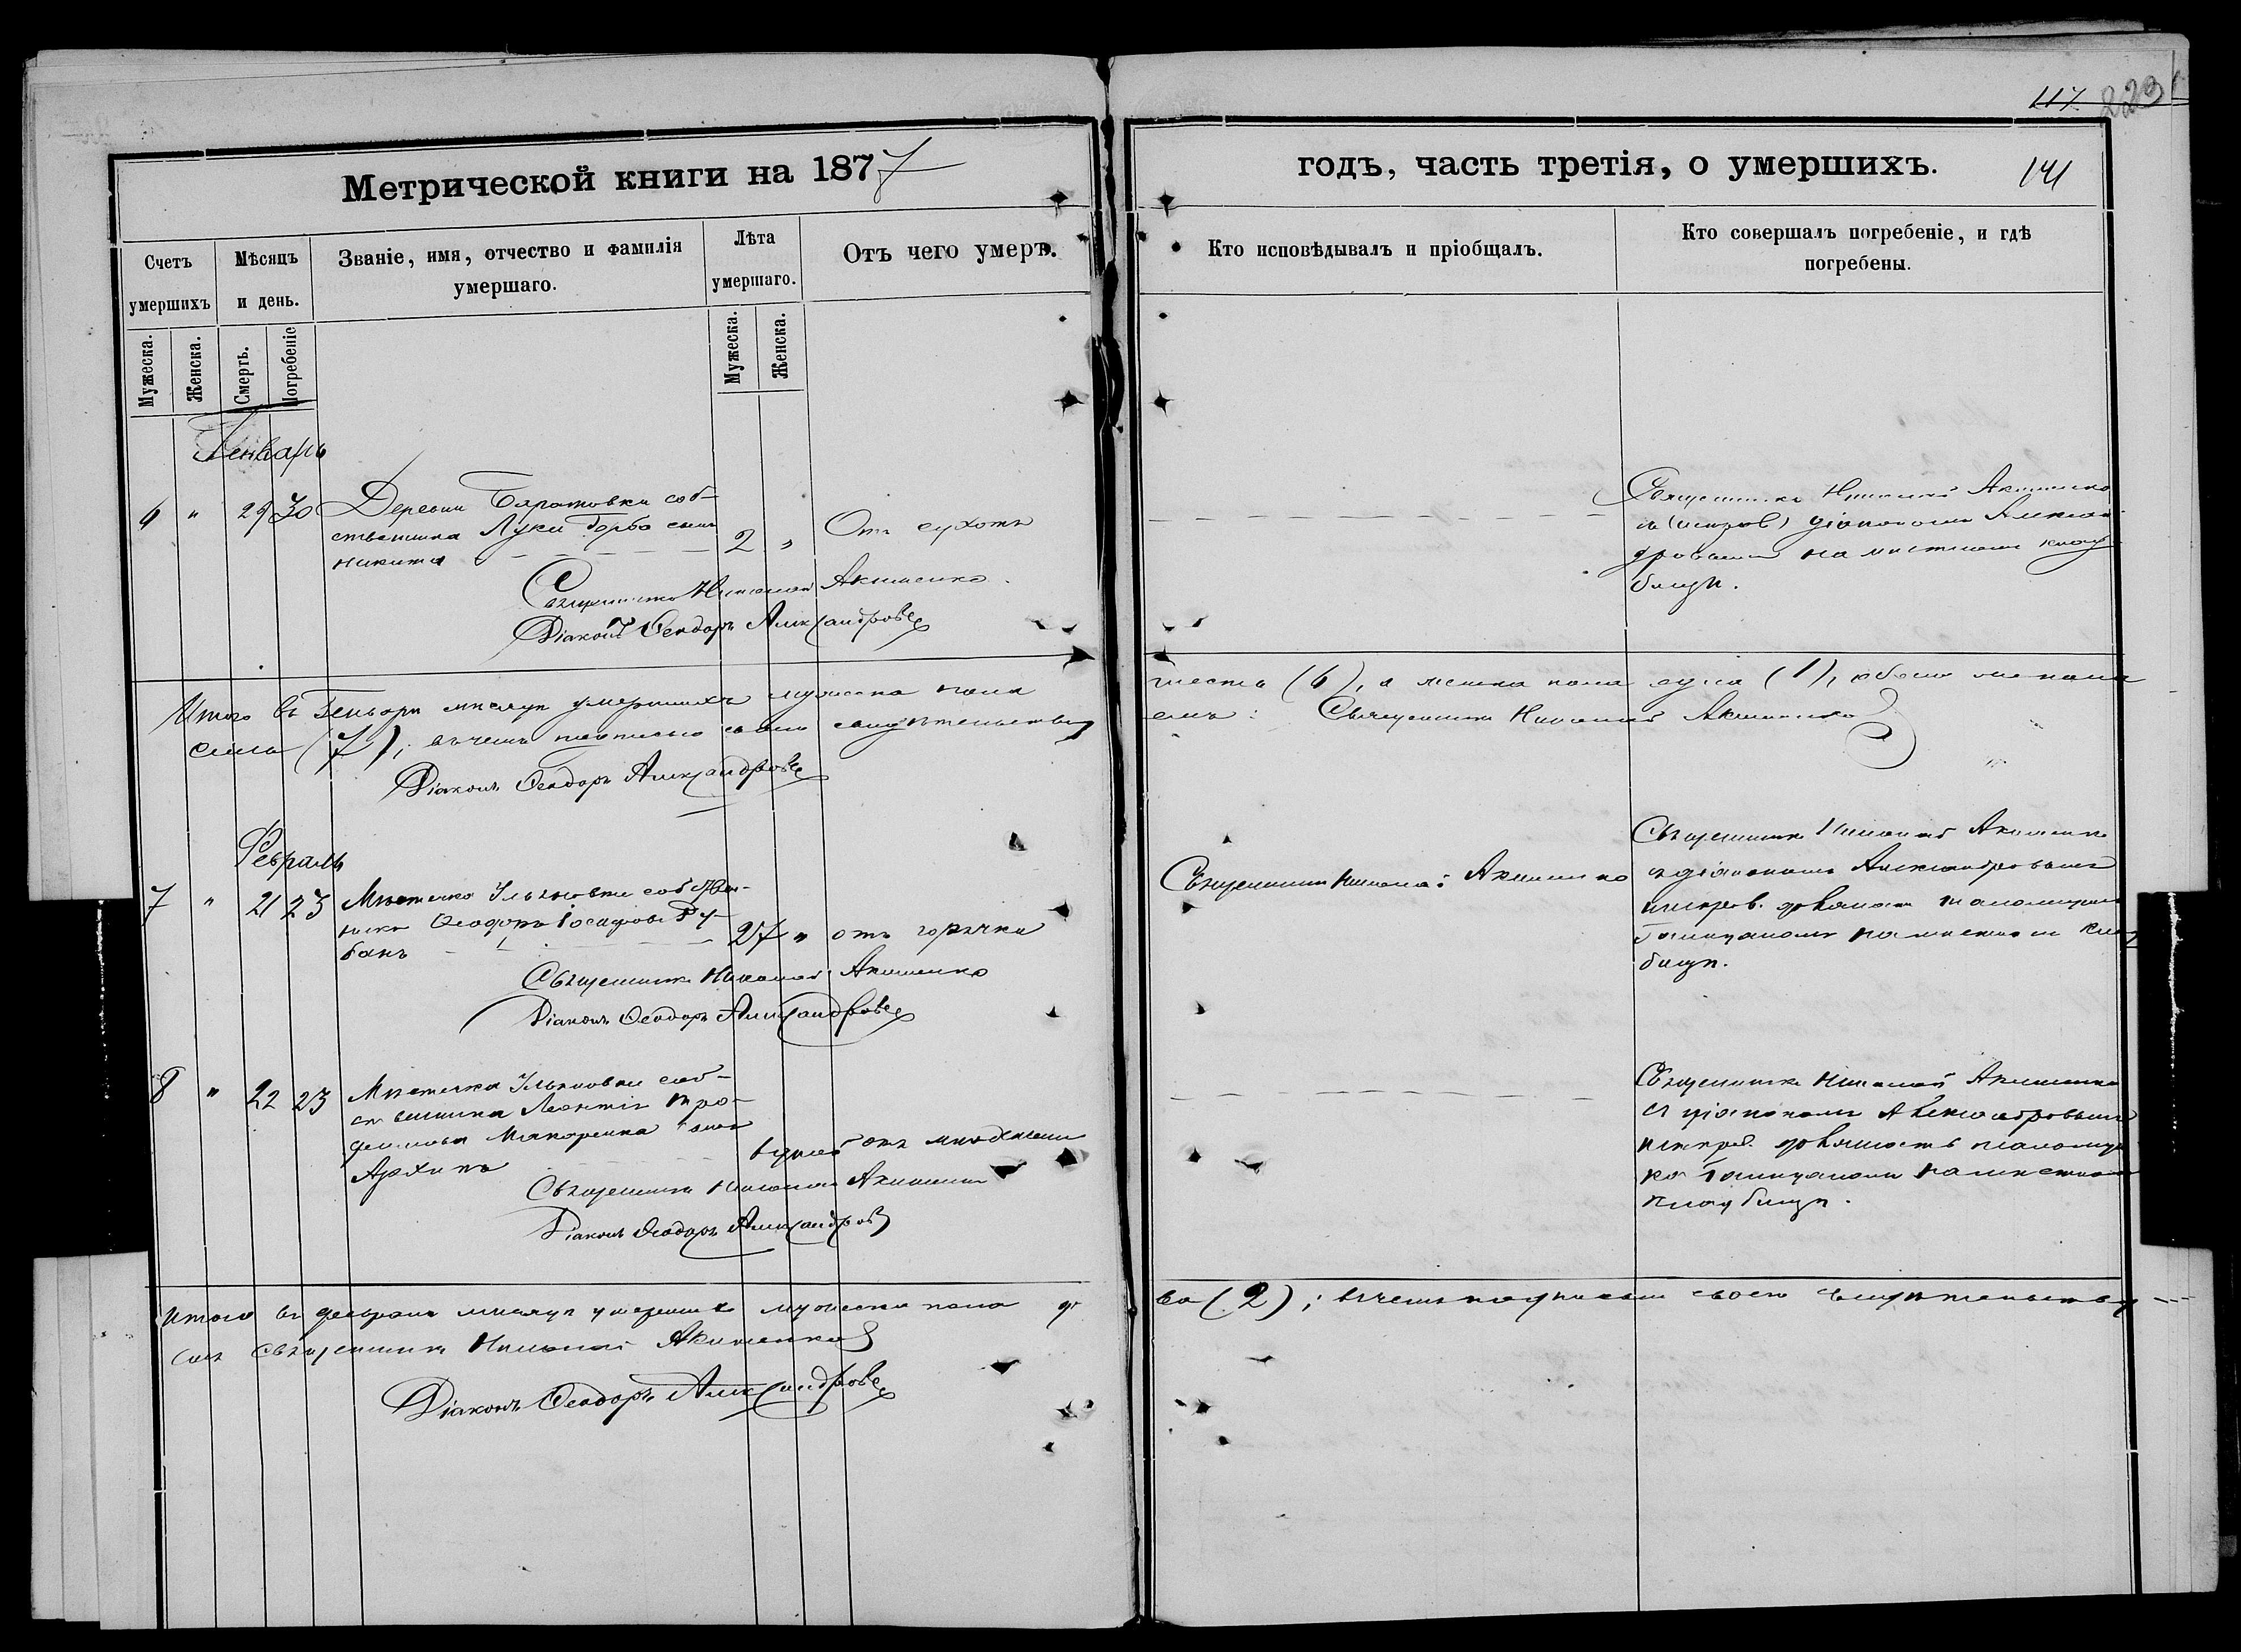 117 223
Метрической книги на 1877
годъ, часть третія, о умершихъ.
141
Счетъ умершихъ
Мѣсяцъ и день.
Званіе, имя, отчество и фамилія умершаго.
Лѣта умершаго.
Отъ чего умеръ.
Кто исповѣдывалъ и пріобщалъ.
Кто совершалъ погребеніе, и гдѣ погребены.
Мужеска.
Женска.
Смерть.
Погребеніе
Мужеска.
Женска.
Генварь
6 " 29 30 Деревни Баратовки соб-
ственника Луки сынъ
Никита 2 " Отъ сухотъ
Священникъ Николай Акименко
Діаконъ Ѳеодоръ Александровъ
Священникъ Николай Акименко
діакономъ Алексан-
дровымъ на мѣстномъ клад-
бищѣ.
Итого въ Генварѣ мѣсяцѣ умершихъ мужеска пола
шесть (6), а женска пола одна (1), обоего же пола
семь (7); въ чемъ подписью своею свидѣтельству
емъ: Священникъ Николай Акименко
Діаконъ Ѳеодоръ Александровъ
Февраль
7 " 21 23 Мѣстечка собствен-
ника Ѳеодоръ Іосифовъ Ру-
банъ 27 " отъ горячки
Священникъ Николай Акименко
Діаконъ Ѳеодоръ Александровъ
Священникъ Николай Акименко
Священникъ Николай Акименко
съ діакономъ Александровымъ
на мѣстномъ клад
бищѣ.
8 " 22 23 Мѣстечка соб-
ственника Леонтія Тро-
Макаренка сынъ
Архипъ
Священникъ Николай Акименко
Діаконъ Ѳеодоръ Александровъ
Священникъ Николай Акименко
съ діакономъ Александровымъ
на мѣстномъ
кладбищѣ.
Итого въ февралѣ мѣсяцѣ умершихъ мужеска пола д
ва (2); въ чемъ подписью своею свидѣтельству
емъ Священникъ Николай Акименко
Діаконъ Ѳеодоръ Александровъ